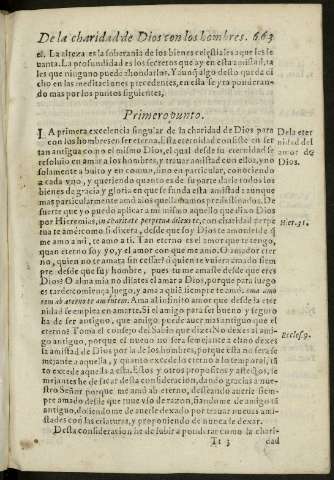 De la charidad de Dios con los hombres. 663
él. La alteza es la soberania de los bienes celestiales a que les le
uanta. La profundidad es los secretos que ay en esta amistad, ta
les que ninguno puede ahondarlas. Y aunq̃ algo desto queda di
cho en las meditaciones precedentes, en esta se yra ponderan
do mas por los puntos siguientes,
Primero punto.
LA primera excelencia singular de la charidad de Dios para
con los hombres es ser eterna. Esta eternidad consiste en ser
tan antigua como el mismo Dios, el qual desde su eternidad se
resoluio en amar a los hombres, y trauar amistad con ellos, y no
solamente a bulto y en comun, sino en particular, conociendo
a cada vno, y queriendo quanto es de su parte darle todos los
bienes de gracia y gloria en que se funda esta amistad: aunque
mas particularmente amó a los que llamamos predestinados. De
suerte que yo puedo aplicar a mi mismo aquello que dixo Dios
por Hieremias, in charitate perpetua dilexi te, con charidad eter
tua te amé: como si dixera, desde que soy Dios te amo: desde q̃
me amo a mi, te amo a ti. Tan eterno es el amor que te tengo,
quan eterno soy yo, y el amor con que me amo. O amador eter
no, quien no te amara sin cesar? ò quien te vuiera amado siem
pre desde que fuy hombre, pues tu me amaste desde que eres
Dios? O alma mia no dilates el amar a Dios, porque para luego
es tarde: comiença luego, y ama a quié siempre te amó:
eum ab æterno te amantem. Ama al infinito amor que desde la eter
nidad se emplea en amarte. Si el amigo para ser bueno y seguro
ha de ser antiguo, que amigo puede auer mas antiguo que el
eterno? Toma el consejo del Sabio que dize: No dexes al ami
go antiguo, porque el nueuo no sera semejante a el: no dexes
la amistad de Dios por la de los hombres, porque esta no sera se
mejante a aquella, y quanto excede lo eterno a lo temporal, tá
to excede aquella a esta. Estos y otros propositos y afectos, se
mejantes he de sacar desta consideracion, dando gracias a nue
stro Señor porque me amó ab eterno, deseando auerle siem
pre amado desde que tuue vso de razon, fiandome de amigo tã
antiguo, doliendome de auerle dexado por trauar nueuas ami
stades con las criaturas, y proponiendo de nunca se dexar.
Desta consideracion he de subir a ponderar como la chari-
Tt 3 dad
De la eter
nidad del
amor de
Dios.
Hier. 31.
Eccles. 9.